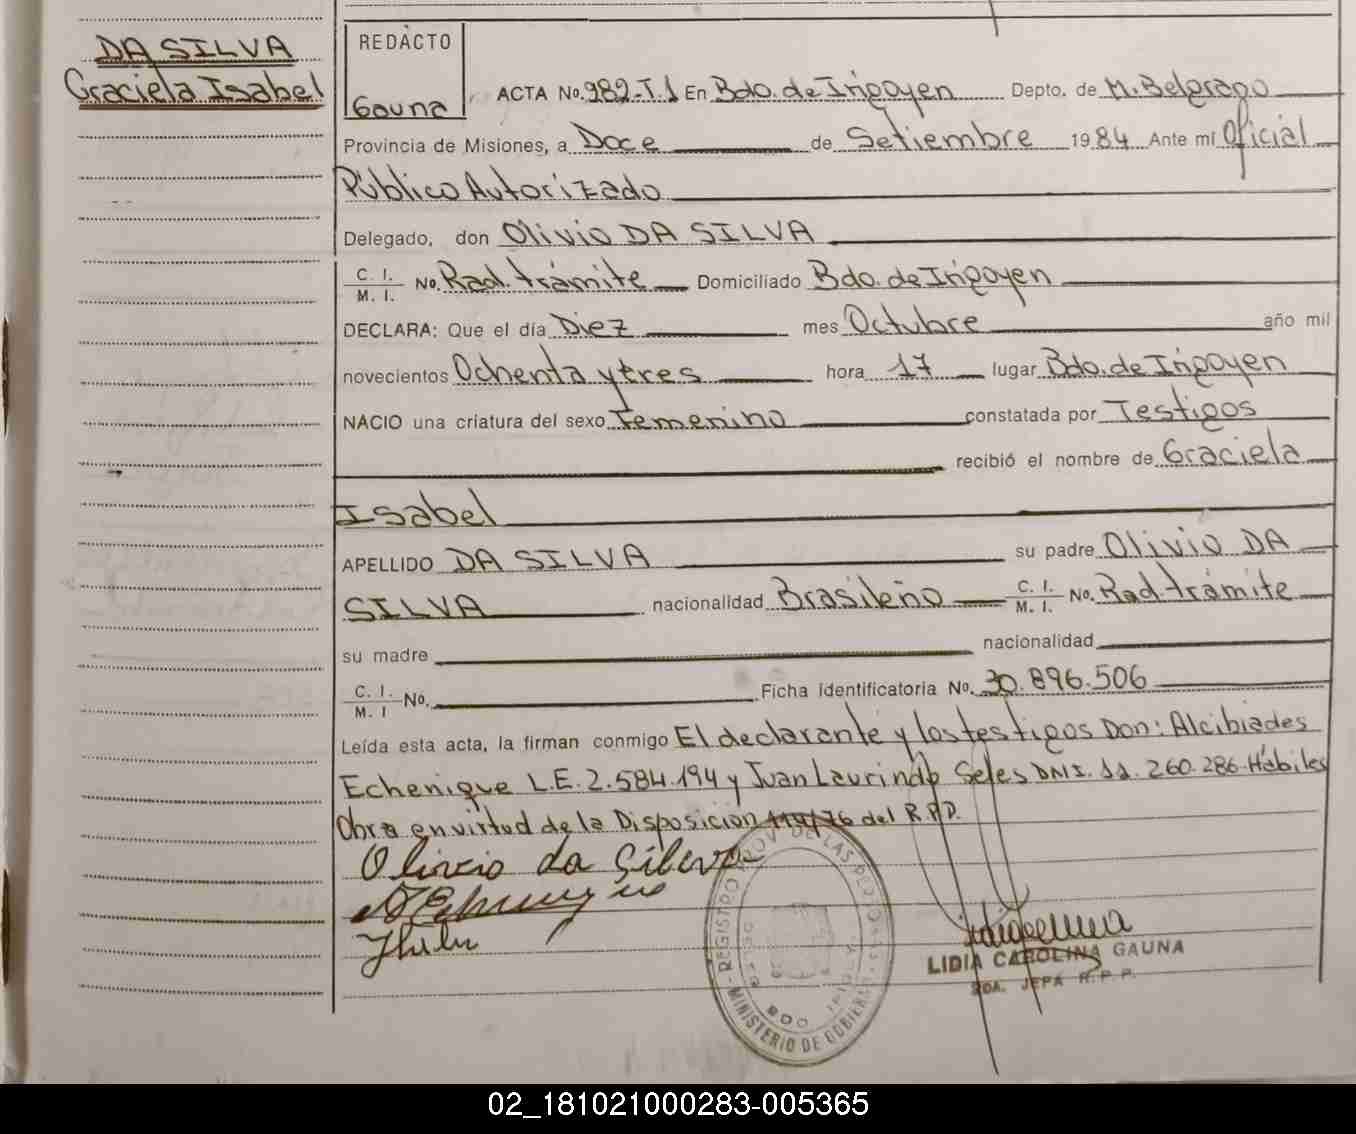 DA SILVA
Graciela Isabel
REDACTO
Gauna
ACTA No. 982-T.1 En Bdo. de Irigoyen Depto. de M. Belgrano
Provincia de Misiones, a Doce de Setiembre 1984 Ante mí Oficial
Público Autorizado
Delegado, don Olivio DA SILVA
C. I.
M. I. No. Rad. trámite Domiciliado Bdo. de Irigoyen
DECLARA: Que el día Diez mes Octubre año mil
novecientos Ochenta y tres hora 17 lugar Bdo. de Irigoyen
NACIO una criatura del sexo Femenino constatada por Testigos
recibió el nombre de Graciela
Isabel
APELLIDO DA SILVA su padre Olivio DA
SILVA nacionalidad Brasileño C. I. M. I. No. Rad. trámite
su madre nacionalidad
C. I.
M. I No. Ficha identificatoria No. 30.896.506
Leída esta acta, la firman conmigo El declarante y los testigos Don: Alcibiades
Echenique L.E. 2.584.194 y Juan Laurindo Seles DNI. 11.260.286. Hábiles
Obra en virtud de la Disposición 114/76 del R.P.P.
Olivio da Silva
REGISTRO PROV. DE LAS PERSONAS
MINISTERIO DE GOBIERNO
BDO
LIDIA CAROLINA GAUNA
2DA. JEFA R.P.P.
02_181021000283-005365